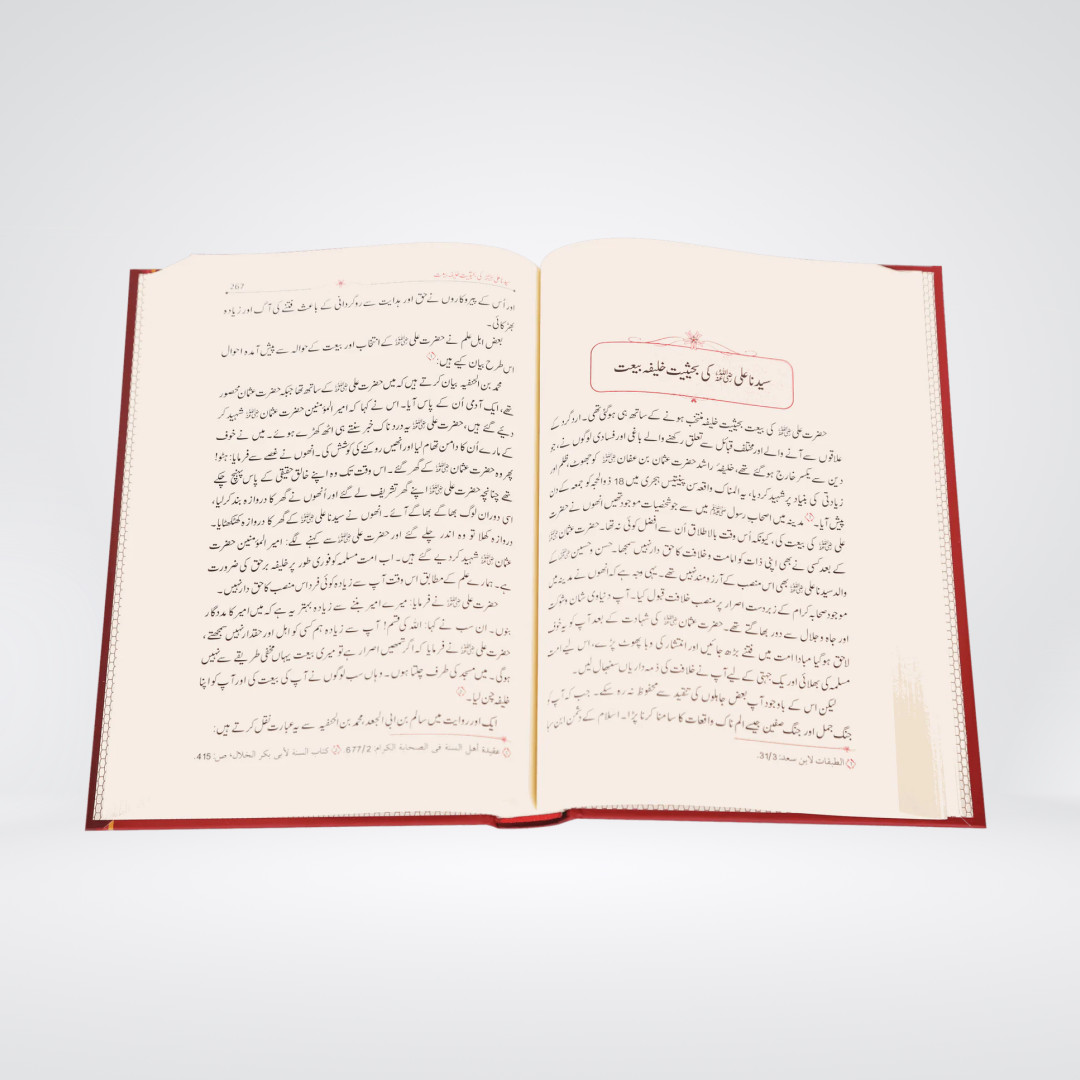 سیدنا علی رضی اللہ عنہ کی بحیثیت خلیفہ بیعت
حضرت علی رضی اللہ عنہ کی بیعت بحیثیت خلیفہ منتخب ہونے کے ساتھ ہی ہوگئی تھی۔ اردگرد کے
علاقوں سے آنے والے اور مختلف قبائل سے تعلق رکھنے والے باغی اور فسادی لوگوں نے، جو
دین سے یکسر خارج ہو گئے تھے، خلیفۂ راشد حضرت عثمان بن عفان رضی اللہ عنہ کو جھوٹ، ظلم اور
زیادتی کی بنیاد پر شہید کر دیا، یہ المناک واقعہ سن پینتیس ہجری میں 18 ذوالحجہ کو جمعہ کے دن
پیش آیا۔① مدینہ میں اصحاب رسول رضی اللہ عنہم میں سے جو شخصیات موجود تھیں انھوں نے حضرت
علی رضی اللہ عنہ کی بیعت کی، کیونکہ اُس وقت بالاطلاق اُن سے افضل کوئی نہ تھا۔ حضرت عثمان رضی اللہ عنہ
کے بعد کسی نے بھی اپنی ذات کو امامت و خلافت کا حق دار نہیں سمجھا۔ حسن و حسین رضی اللہ عنہما کے
والد سیدنا علی رضی اللہ عنہ بھی اس منصب کے آرزو مند نہیں تھے۔ یہی وجہ ہے کہ انھوں نے مدینہ میں
موجود صحابہ کرام کے زبردست اصرار پر منصب خلافت قبول کیا۔ آپ دنیاوی شان و شوکت
اور جاہ و جلال سے دور بھاگتے تھے۔ حضرت عثمان رضی اللہ عنہ کی شہادت کے بعد آپ کو یہ خوف
لاحق ہو گیا مبادا امت میں فتنے بڑھ جائیں اور انتشار کی وبا پھوٹ پڑے، اس لیے امت
مسلمہ کی بھلائی اور یک جہتی کے لیے آپ نے خلافت کی ذمہ داریاں سنبھال لیں۔
لیکن اس کے باوجود آپ بعض جاہلوں کی تنقید سے محفوظ نہ رہ سکے۔ جب کہ آپ کو
جنگ جمل اور جنگ صفین جیسے الم ناک واقعات کا سامنا کرنا پڑا۔ اسلام کے دشمن ابن سبا
① الطبقات لابن سعد: 31/3.
سیدنا علی رضی اللہ عنہ کی بحیثیت خلیفہ بیعت 267
اور اُس کے پیروکاروں نے حق اور ہدایت سے روگردانی کے باعث فتنے کی آگ اور زیادہ
بھڑکائی۔
بعض اہل علم نے حضرت علی رضی اللہ عنہ کے انتخاب اور بیعت کے حوالہ سے پیش آمدہ احوال
اس طرح بیان کیے ہیں:①
محمد بن الحنفیہ بیان کرتے ہیں کہ میں حضرت علی رضی اللہ عنہ کے ساتھ تھا جبکہ حضرت عثمان محصور
تھے، ایک آدمی اُن کے پاس آیا۔ اس نے کہا کہ امیر المؤمنین حضرت عثمان رضی اللہ عنہ شہید کر
دیے گئے ہیں، حضرت علی رضی اللہ عنہ یہ درد ناک خبر سنتے ہی اٹھ کھڑے ہوئے۔ میں نے خوف
کے مارے اُن کا دامن تھام لیا اور انھیں روکنے کی کوشش کی۔ انھوں نے غصے سے فرمایا: ہٹو!
پھر وہ حضرت عثمان رضی اللہ عنہ کے گھر گئے۔ اس وقت تک وہ اپنے خالق حقیقی کے پاس پہنچ چکے
تھے چنانچہ حضرت علی رضی اللہ عنہ اپنے گھر تشریف لے گئے اور انھوں نے گھر کا دروازہ بند کر لیا،
اسی دوران لوگ بھاگے بھاگے آئے۔ انھوں نے سیدنا علی رضی اللہ عنہ کے گھر کا دروازہ کھٹکھٹایا۔
دروازہ کھلا تو وہ اندر چلے گئے اور حضرت علی رضی اللہ عنہ سے کہنے لگے: امیر المؤمنین حضرت
عثمان رضی اللہ عنہ شہید کر دیے گئے ہیں۔ اب امت مسلمہ کو فوری طور پر خلیفہ برحق کی ضرورت
ہے۔ ہمارے علم کے مطابق اس وقت آپ سے زیادہ کوئی فرد اس منصب کا حق دار نہیں۔
حضرت علی رضی اللہ عنہ نے فرمایا: میرے امیر بننے سے زیادہ بہتر یہ ہے کہ میں امیر کا مددگار
بنوں۔ ان سب نے کہا: اللہ کی قسم! آپ سے زیادہ ہم کسی کو اہل اور حقدار نہیں سمجھتے،
حضرت علی رضی اللہ عنہ نے فرمایا کہ اگر تمھیں اصرار ہے تو میری بیعت یہاں مخفی طریقے سے نہیں
ہوگی۔ میں مسجد کی طرف چلتا ہوں۔ وہاں سب لوگوں نے آپ کی بیعت کی اور آپ کو اپنا
خلیفہ چن لیا۔②
ایک اور روایت میں سالم بن ابی الجعد محمد بن الحنفیہ سے یہ عبارت نقل کرتے ہیں:
① عقيدة أهل السنة في الصحابة الكرام: 677/2 ② كتاب السنة لأبي بكر الخلال، ص: 415.